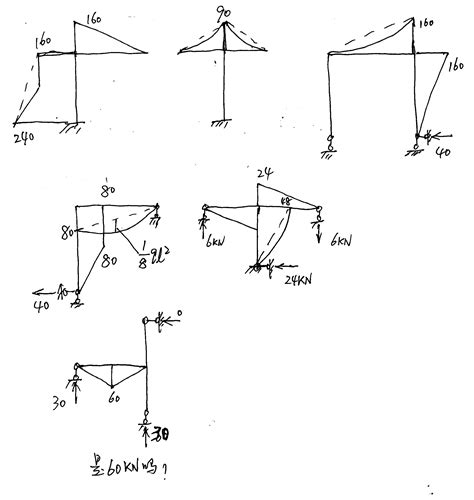 160
160
240
90
160
160
40
80
80
80
1/8 ql²
40
24
48
6KN
6KN
24KN
0
60
30
30
P=60KN吗?